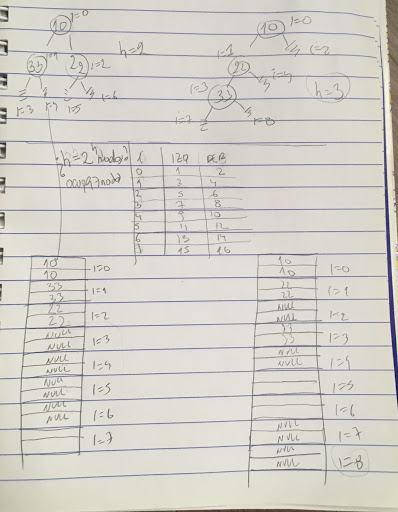 10 i=0
33 i=1
22 i=2
h=2
i=3 i=4 i=5 i=6
10 i=0
i=1 i=2
22
i=3 i=4
33
h=3
i=7 i=8
i IZQ DER
0 1 2
1 3 4
2 5 6
3 7 8
4 9 10
5 11 12
6 13 14
7 15 16
10
10 i=0
33
33 i=1
22
22 i=2
NULL
NULL i=3
NULL
NULL i=4
NULL
NULL i=5
NULL
NULL i=6
i=7
10
10 i=0
22
22 i=1
NULL
NULL i=2
33
33 i=3
NULL
NULL i=4
i=5
i=6
NULL
NULL i=7
NULL
NULL i=8